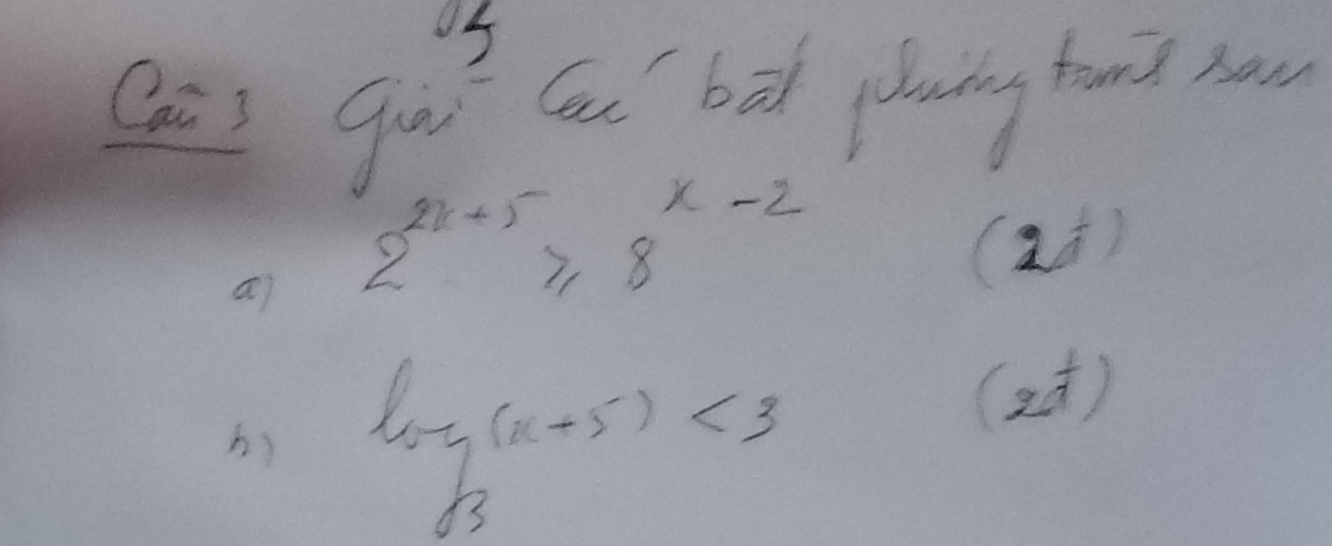 Câu 3 Giải các bất phương trình sau
a) 2^{2x+5} ≥ 8^{x-2} (2đ)
b) log_3 (x+5) < 3 (2đ)